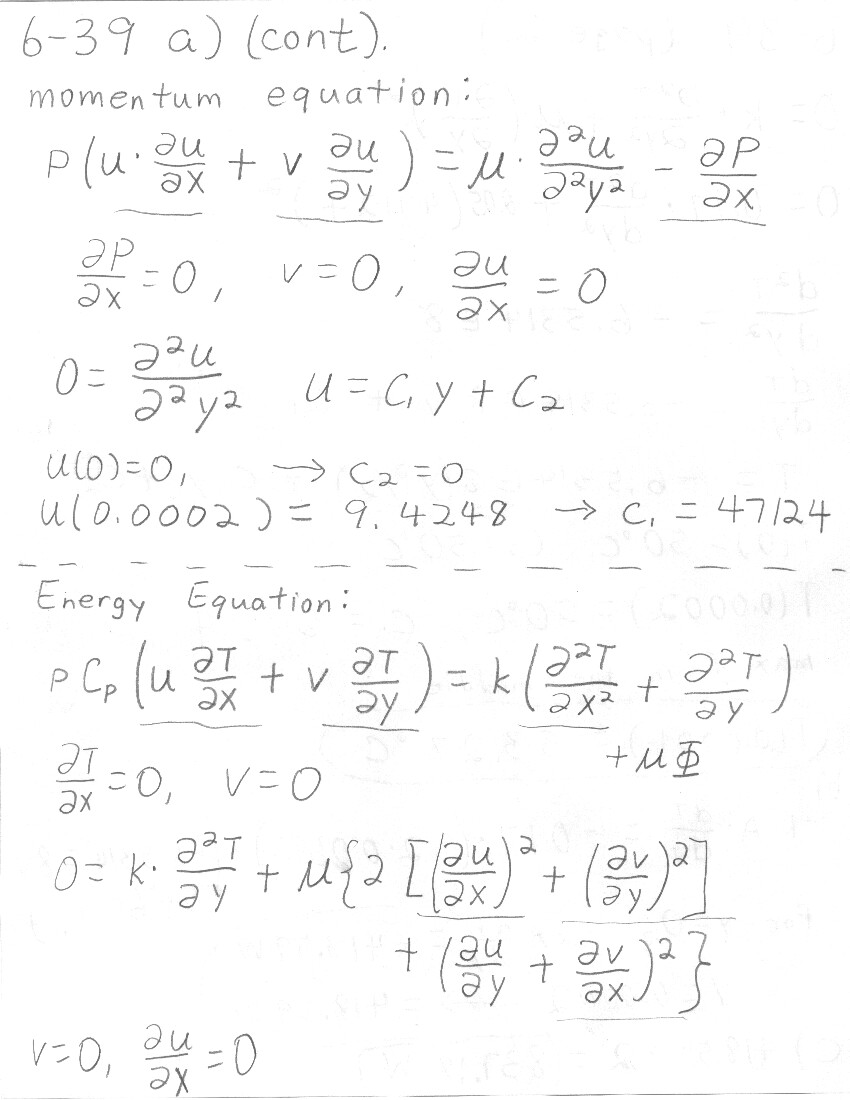 6-39 a) (cont).
momentum equation:
ρ(u·∂u/∂x + v ∂u/∂y) = μ·∂²u/∂²y² - ∂P/∂x
∂P/∂x = 0, v = 0, ∂u/∂x = 0
0 = ∂²u/∂²y² u = C₁y + C₂
u(0)=0, → C₂ = 0
u(0.0002) = 9.4248 → C₁ = 47124
Energy Equation:
ρCₚ(u ∂T/∂x + v ∂T/∂y) = k(∂²T/∂x² + ∂²T/∂y)
+ μΦ
∂T/∂x = 0, v = 0
0 = k·∂²T/∂y + μ{2[(∂u/∂x)² + (∂v/∂y)²]
+ (∂u/∂y + ∂v/∂x)²}
v=0, ∂u/∂x = 0